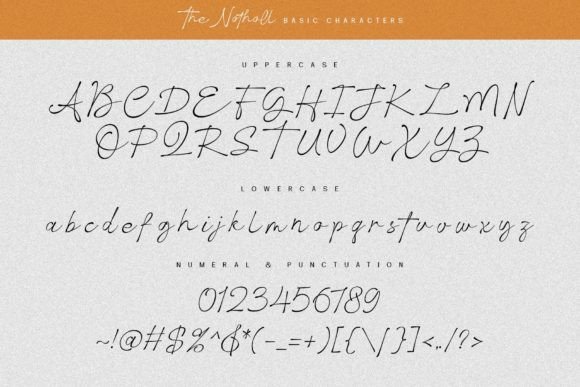 The Notholl BASIC CHARACTERS
UPPERCASE
ABCDEFGHIJKLMN
OPQRSTUVWXYZ
LOWERCASE
abcdefghijklmnopqrstuvwxyz
NUMERAL & PUNCTUATION
0123456789
~!@#$%^&*(-_=+)[{\/}]<,./?>